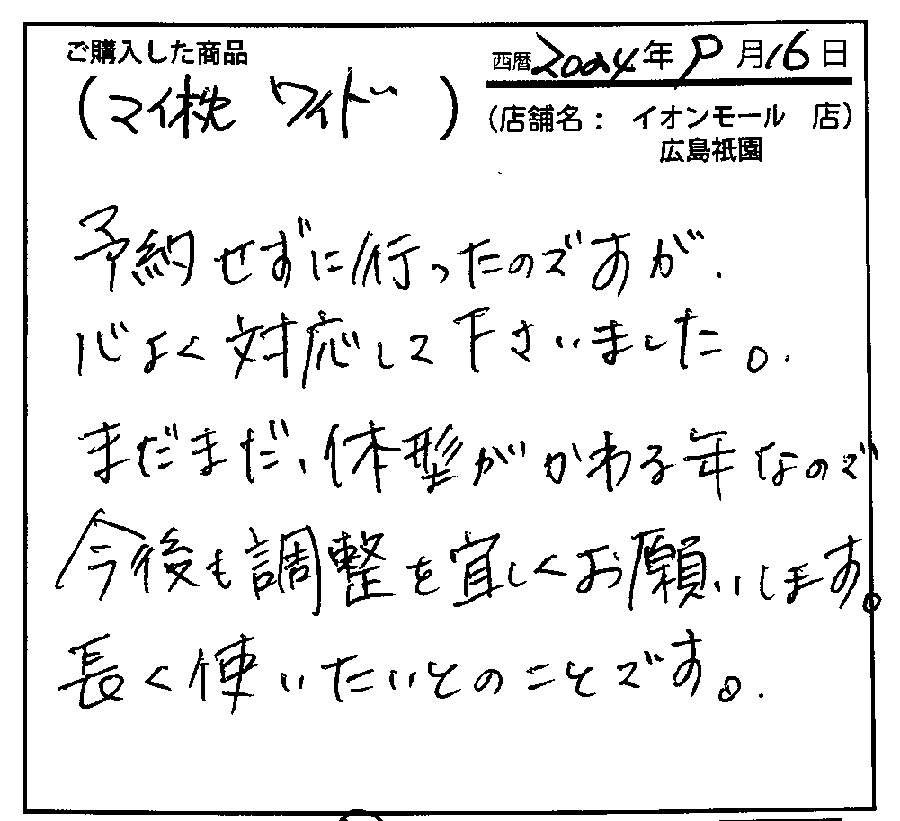 ご購入した商品
西暦2024年9月16日
(マイ枕 ワイド)
(店舗名： イオンモール 店)
広島祇園
予約せずに行ったのですが、
心よく対応して下さいました。
まだまだ、体型がかわる年なので
今後も調整を宜しくお願いします。
長く使いたいとのことです。